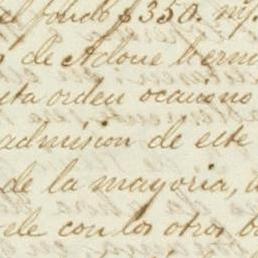 el fondo $350. 
de Adoue
esta orden ocasiono
admision de este
de la mayoria,
ele con los otros